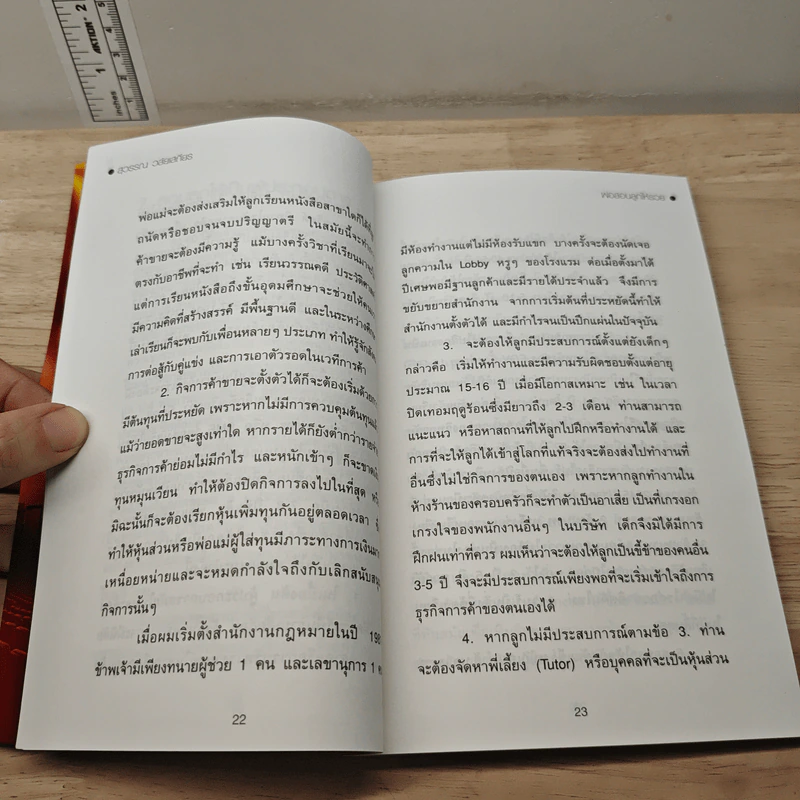 inches 1 2
AKTION
สุวรรณ วลัยเสถียร
พ่อแม่จะต้องส่งเสริมให้ลูกเรียนหนังสือสาขาใดก็ได้
ถนัดหรือชอบจนจบปริญญาตรี ในสมัยนี้จะ
ค้าขายจะต้องมีความรู้ แม้บางครั้งวิชาที่เรียนมา
ตรงกับอาชีพที่จะทำ เช่น เรียนวรรณคดี ประวัติศา
แต่การเรียนหนังสือถึงขั้นอุดมศึกษาจะช่วยให้
มีความคิดที่สร้างสรรค์ มีพื้นฐานดี และในระหว่าง
เล่าเรียนก็จะพบกับเพื่อนหลายๆ ประเภท ทำให้รู้จัก
การต่อสู้กับคู่แข่ง และการเอาตัวรอดในเวทีการค้า
2. กิจการค้าขายจะตั้งตัวได้ก็จะต้องเริ่มด้วย
มีต้นทุนที่ประหยัด เพราะหากไม่มีการควบคุมต้นทุน
แม้ว่ายอดขายจะสูงเท่าใด หากรายได้ก็ยังต่ำกว่า
ธุรกิจการค้าย่อมไม่มีกำไร และหนักเข้าๆ ก็จะขาด
ทุนหมุนเวียน ทำให้ต้องปิดกิจการลงไปในที่สุด
มิฉะนั้นก็จะต้องเรียกหุ้นเพิ่มทุนกันอยู่ตลอดเวลา
ทำให้หุ้นส่วนหรือพ่อแม่ผู้ใส่ทุนมีภาระทางการเงิน
เหนื่อยหน่ายและจะหมดกำลังใจถึงกับเลิกสนับสนุน
กิจการนั้นๆ
เมื่อผมเริ่มตั้งสำนักงานกฎหมายในปี 198
ข้าพเจ้ามีเพียงทนายผู้ช่วย 1 คน และเลขานุการ 1
22
พ่อสอนลูกให้รวย
มีห้องทำงานแต่ไม่มีห้องรับแขก บางครั้งจะต้องนัดเจอ
ลูกความใน Lobby หรูๆ ของโรงแรม ต่อเมื่อตั้งมาได้
ปีเศษพอมีฐานลูกค้าและมีรายได้ประจำแล้ว จึงมีการ
ขยับขยายสำนักงาน จากการเริ่มต้นที่ประหยัดนี้ทำให้
สำนักงานตั้งตัวได้ และมีกำไรจนเป็นปึกแผ่นในปัจจุบัน
3. จะต้องให้ลูกมีประสบการณ์ตั้งแต่ยังเด็กๆ
กล่าวคือ เริ่มให้ทำงานและมีความรับผิดชอบตั้งแต่อายุ
ประมาณ 15-16 ปี เมื่อมีโอกาสเหมาะ เช่น ในเวลา
ปิดเทอมฤดูร้อนซึ่งมียาวถึง 2-3 เดือน ท่านสามารถ
แนะแนว หรือหาสถานที่ให้ลูกไปฝึกหรือทำงานได้ และ
การที่จะให้ลูกได้เข้าสู่โลกที่แท้จริงจะต้องส่งไปทำงานที่
อื่นซึ่งไม่ใช่กิจการของตนเอง เพราะหากลูกทำงานใน
ห้างร้านของครอบครัวก็จะทำตัวเป็นอาเสี่ย เป็นที่เกรงอก
เกรงใจของพนักงานอื่นๆ ในบริษัท เด็กจึงมิได้มีการ
ฝึกฝนเท่าที่ควร ผมเห็นว่าจะต้องให้ลูกเป็นขี้ข้าของคนอื่น
3-5 ปี จึงจะมีประสบการณ์เพียงพอที่จะเริ่มเข้าใจถึงการ
ธุรกิจการค้าของตนเองได้
4. หากลูกไม่มีประสบการณ์ตามข้อ 3. ท่าน
จะต้องจัดหาพี่เลี้ยง (Tutor) หรือบุคคลที่จะเป็นหุ้นส่วน
23